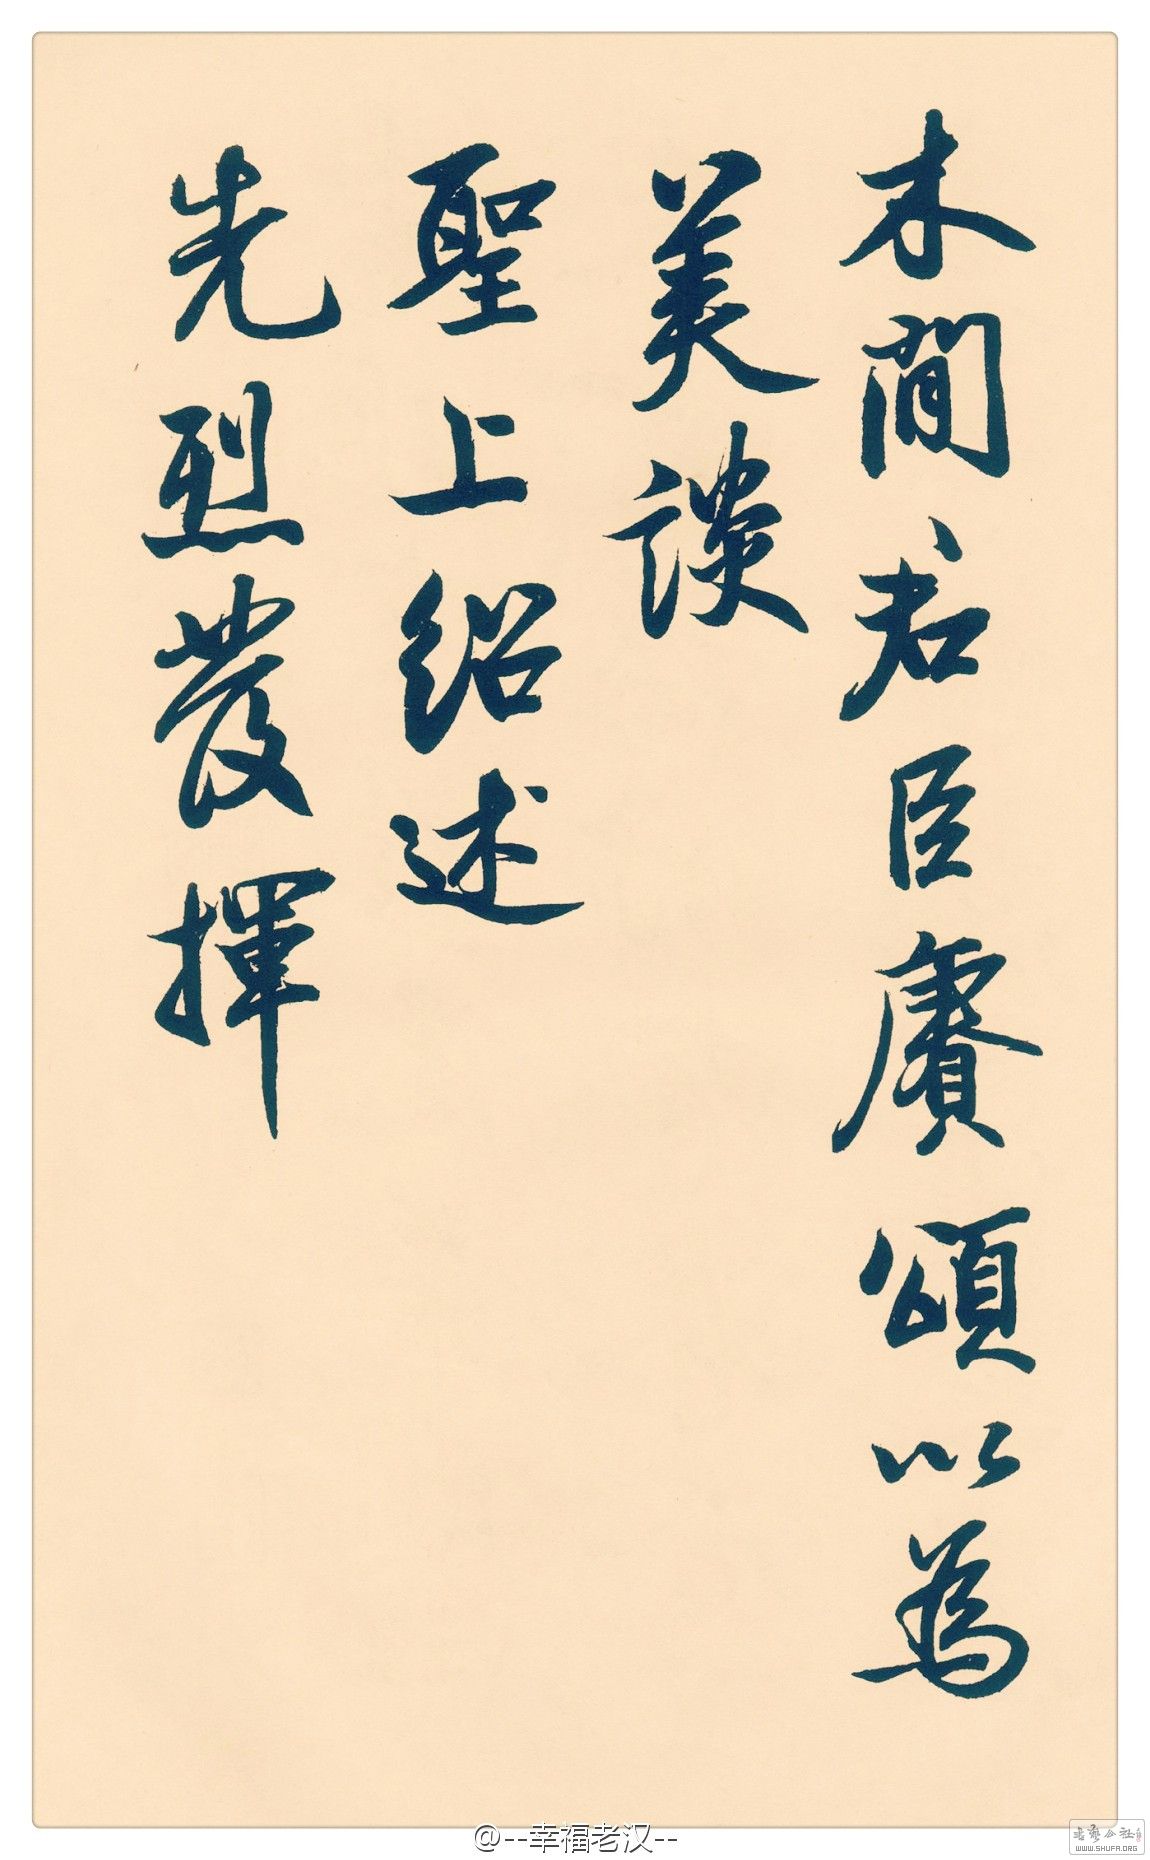 木間君臣賡頌以為
美談
聖上紹述
先烈發揮
@--幸福老汉--
书艺公社
WWW.SHUFA.ORG